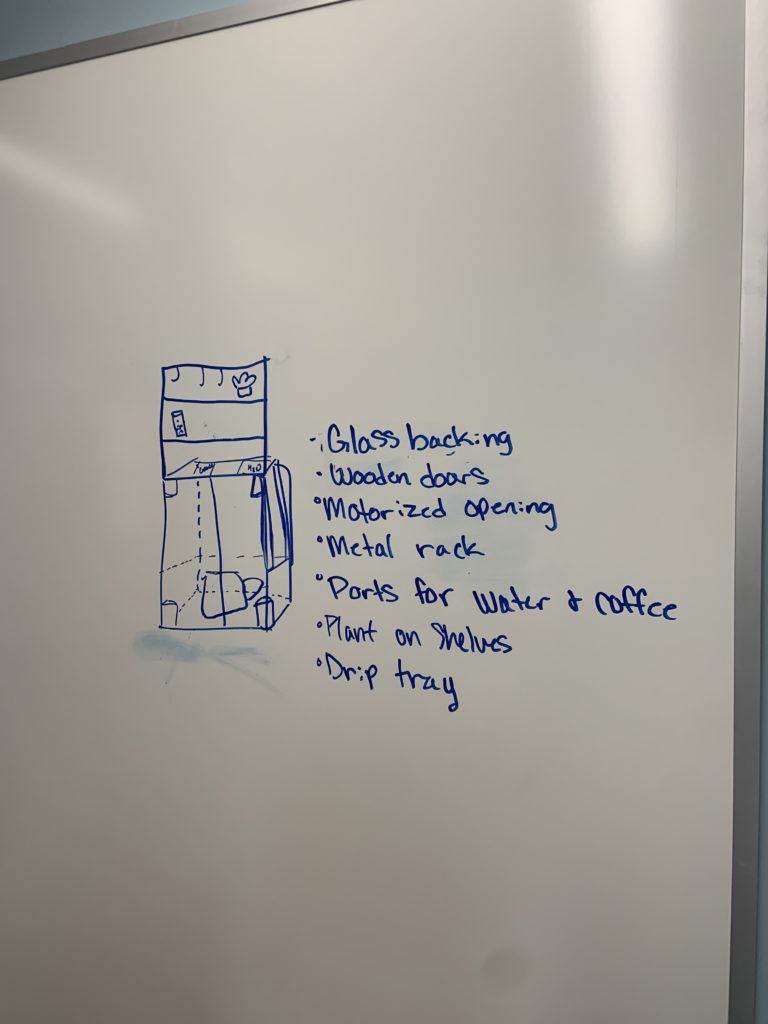 H2O
· Glass backing
· Wooden doors
· Motorized opening
· Metal rack
· Ports for water & coffee
· Plant on shelves
· Drip tray